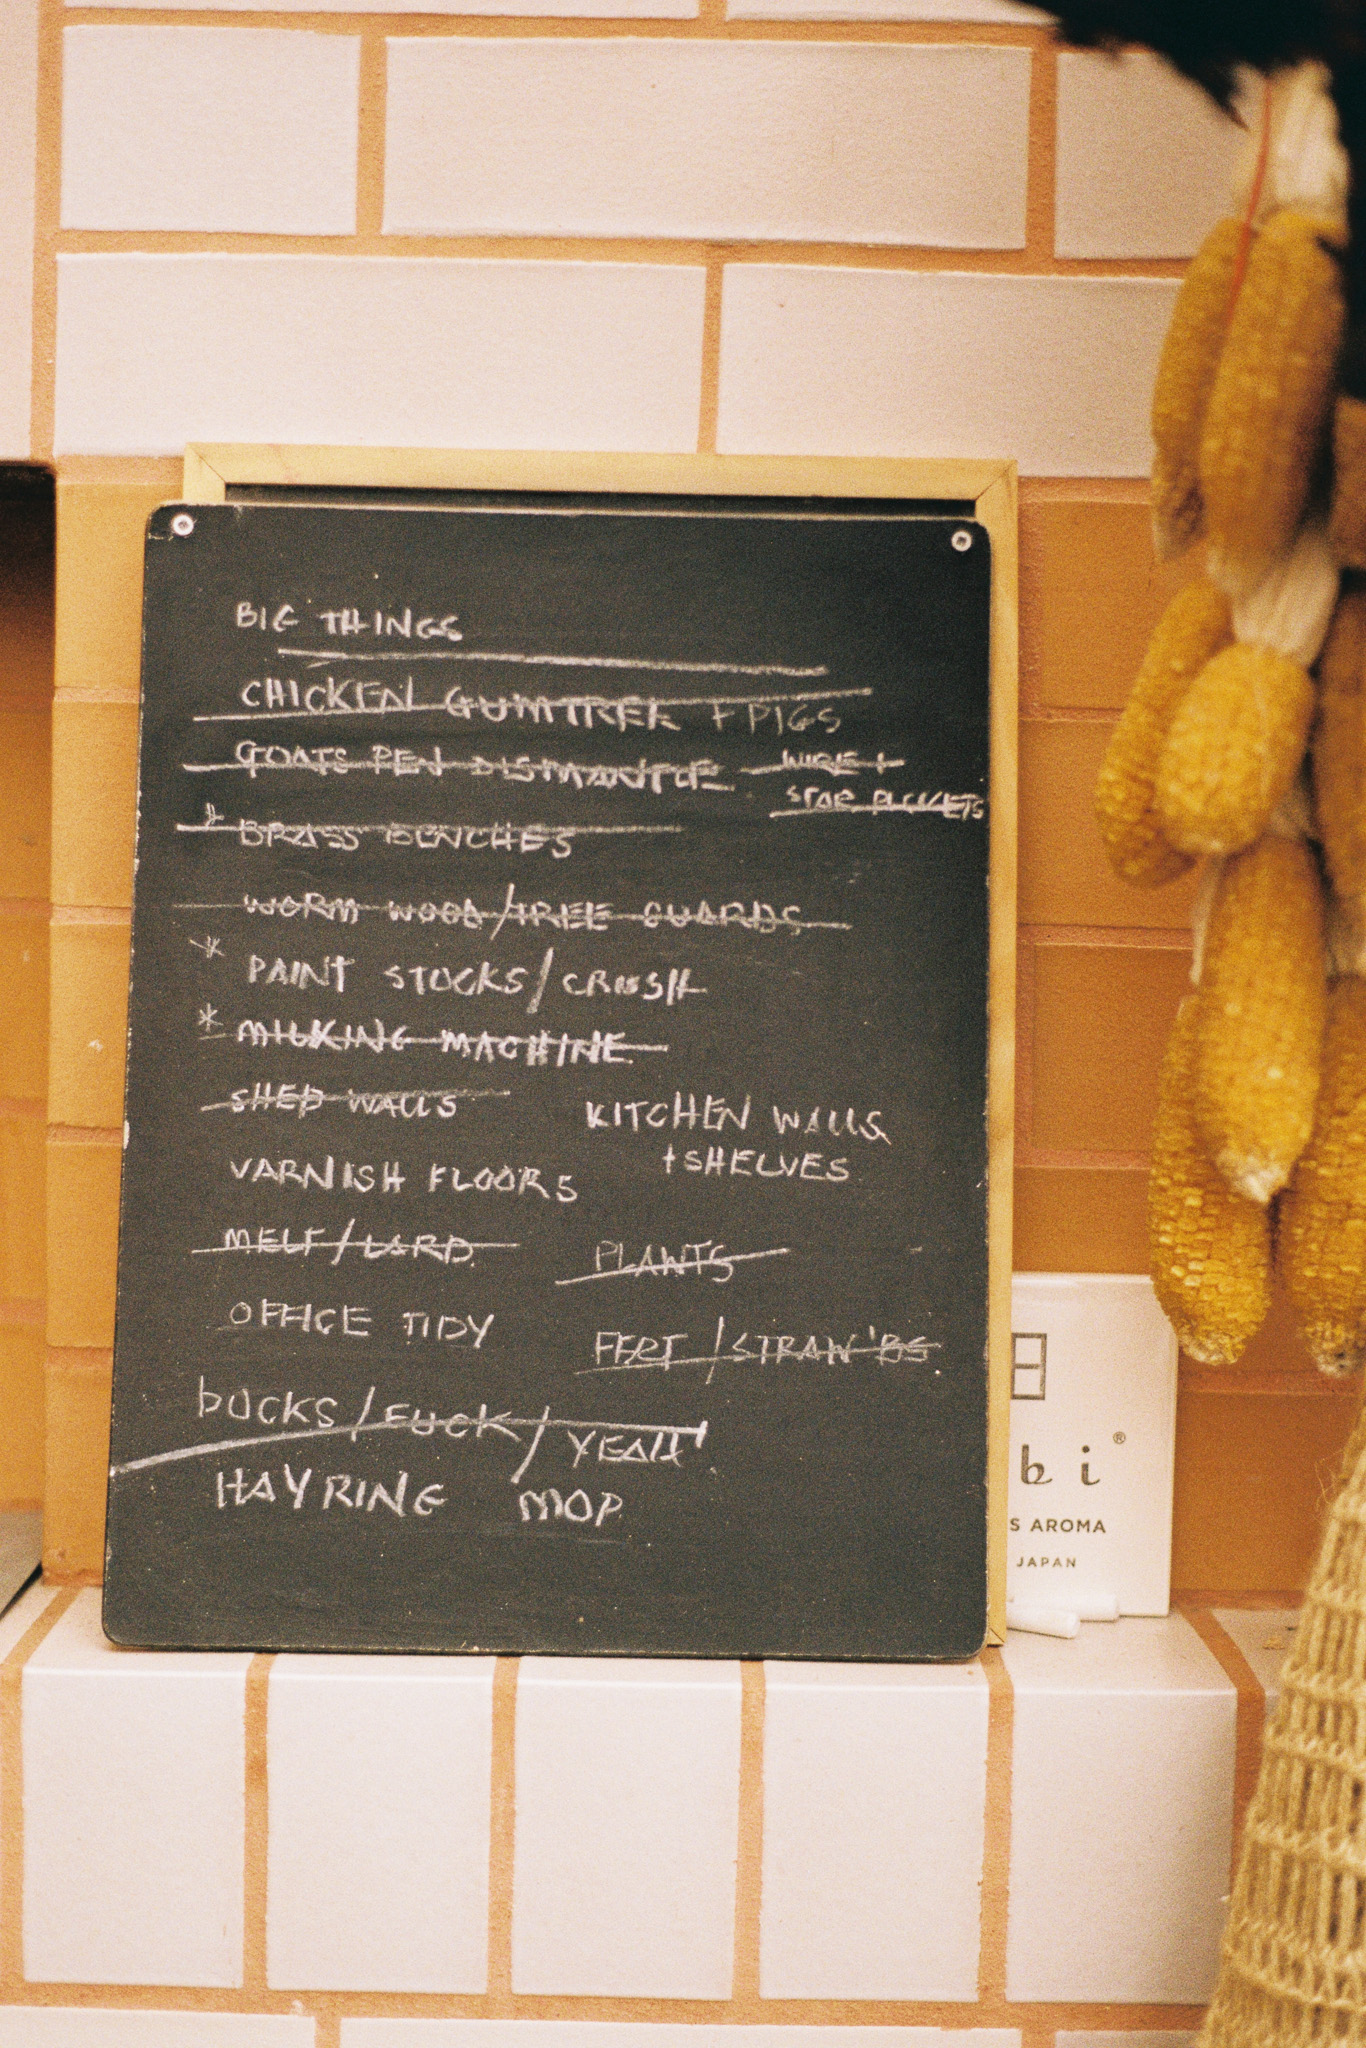 BIG THINGS
CHICKEN GUMTREE + PIGS
GOATS PEN DISMANTLE WIRE +
STAR PICKETS
* BRASS BENCHES
WORM WOOD/TREE GUARDS
* PAINT STOCKS/CRUSH
* MILKING MACHINE
SHED WALLS
KITCHEN WALLS
+SHELVES
VARNISH FLOORS
MELT/LARD
PLANTS
OFFICE TIDY
FERT/STRAW'BS
DUCKS/FUCK/YEAH
HAYRING MOP
bi®
S AROMA
JAPAN